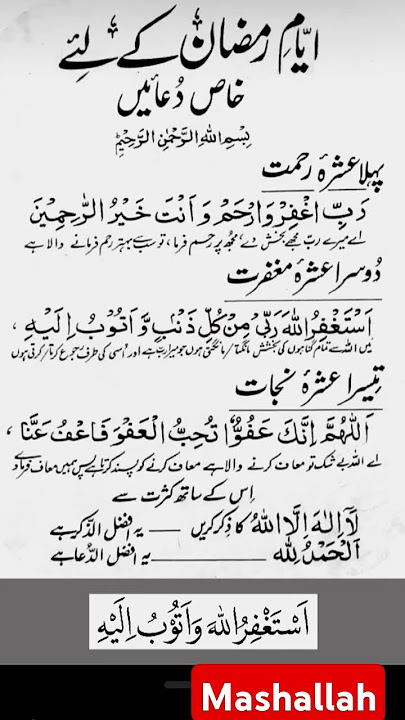 ایامِ رمضان کے لئے
خاص دُعائیں
بِسْمِ اللهِ الرَّحْمٰنِ الرَّحِیْمِ
پہلا عشرۂ رحمت
رَبِّ اغْفِرْ وَارْحَمْ وَ اَنْتَ خَیْرُ الرّٰحِمِیْنَ
اے میرے رب مجھے بخش دے، مجھ پر رحم فرما، تو سب سے بہتر رحم فرمانے والا ہے
دُوسرا عشرۂ مغفرت
اَسْتَغْفِرُ اللهَ رَبِّیْ مِنْ کُلِّ ذَنْۢبٍ وَّ اَتُوْبُ اِلَیْهِ ،
میں اللہ سے تمام گناہوں کی بخشش مانگتا/مانگتی ہوں جو میرا رب ہے اور اُسی کی طرف رجوع کرتا/کرتی ہوں
تیسرا عشرۂ نجات
اَللّٰهُمَّ اِنَّكَ عَفُوٌّ تُحِبُّ الْعَفْوَ فَاعْفُ عَنَّا ،
اے اللہ بے شک تو معاف کرنے والا ہے معاف کرنے کو پسند کرتا ہے پس ہمیں معاف فرما دے
اِس کے ساتھ کثرت سے
لَآ اِلٰهَ اِلَّا اللهُ کا ذِکر کریں —— یہ افضل الذّکر ہے
اَلْحَمْدُ لِلّٰهِ —————— یہ افضل الدُّعا ہے
اَسْتَغْفِرُ اللهَ وَ اَتُوْبُ اِلَیْهِ
Mashallah